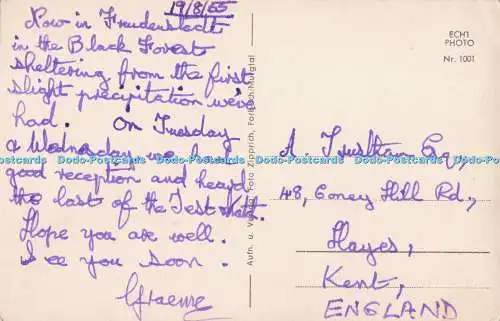 19/8/55
Now in Freudenstadt
in the Black Forest
sheltering from the first
slight precipitation we've
had. On Tuesday
& Wednesday we had
good reception and heard
the last of the Test Match.
Hope you are well.
See you soon.
Graeme
Aufn. u. Verlag Foto Zipprich, Forbach-Murgtal
ECHT
PHOTO
Nr. 1001
A. Esq.,
48, Coney Hill Rd.,
Hayes,
Kent,
ENGLAND
Dodo-Postcards Dodo-Postcards Dodo-Postcards Dodo-Postcards Dodo-Postcards